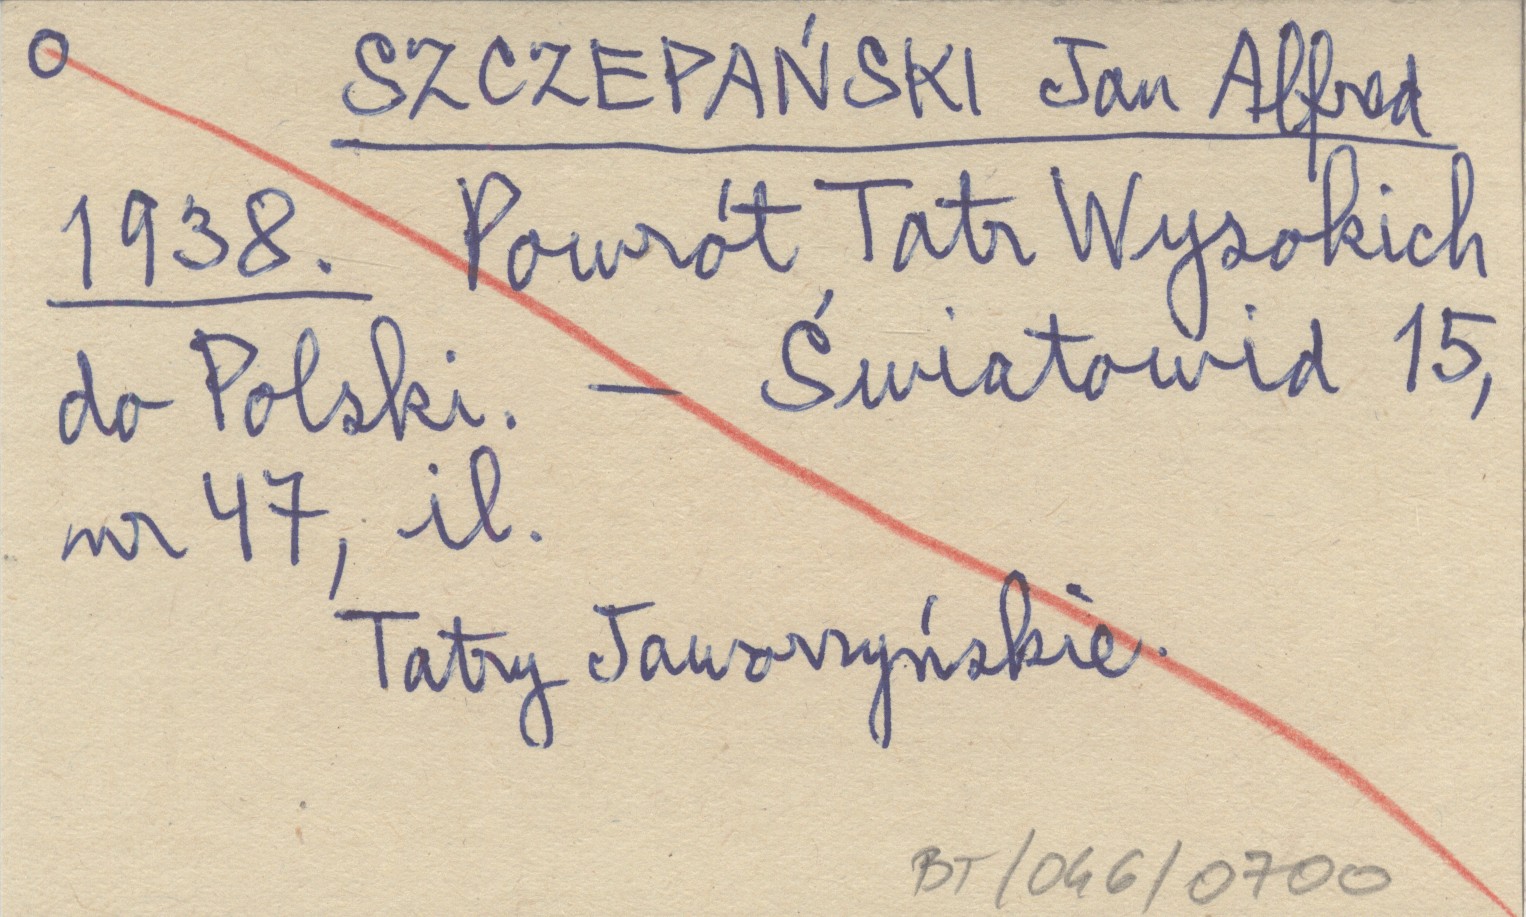 O SZCZEPAŃSKI Jan Alfred
1938. Powrót Tatr Wysokich
do Polski. — Światowid 15,
nr 47, il.
Tatry Jaworzyńskie.
BT/046/0700